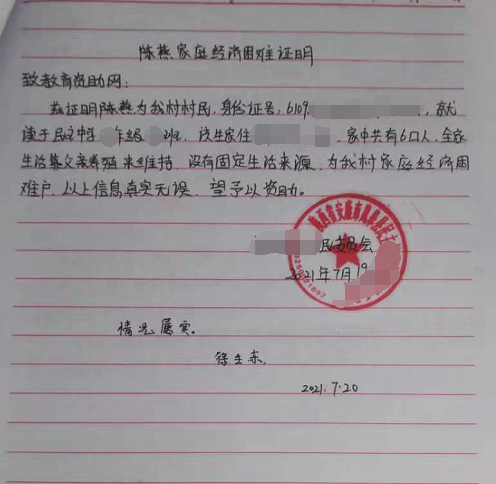 陈燕家庭经济困难证明
致教育资助网:
兹证明陈燕为我村村民,身份证号:6109 ,就
读于民主中学 年级 班,该生家住 ,家中共有6口人,全家
生活靠父亲养殖来维持,没有固定生活来源,为我村家庭经济困
难户,以上信息真实无误,望予以资助。
民委员会
2021年7月19
情况属实。
徐生东.
2021.7.20